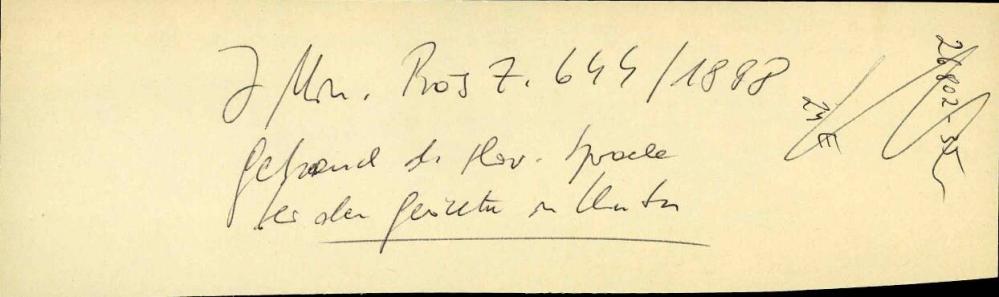 J Min. Präs Z. 644/1888
Gebrauch d. slov. Sprache
bei den Gerichten in
24 E
26802-